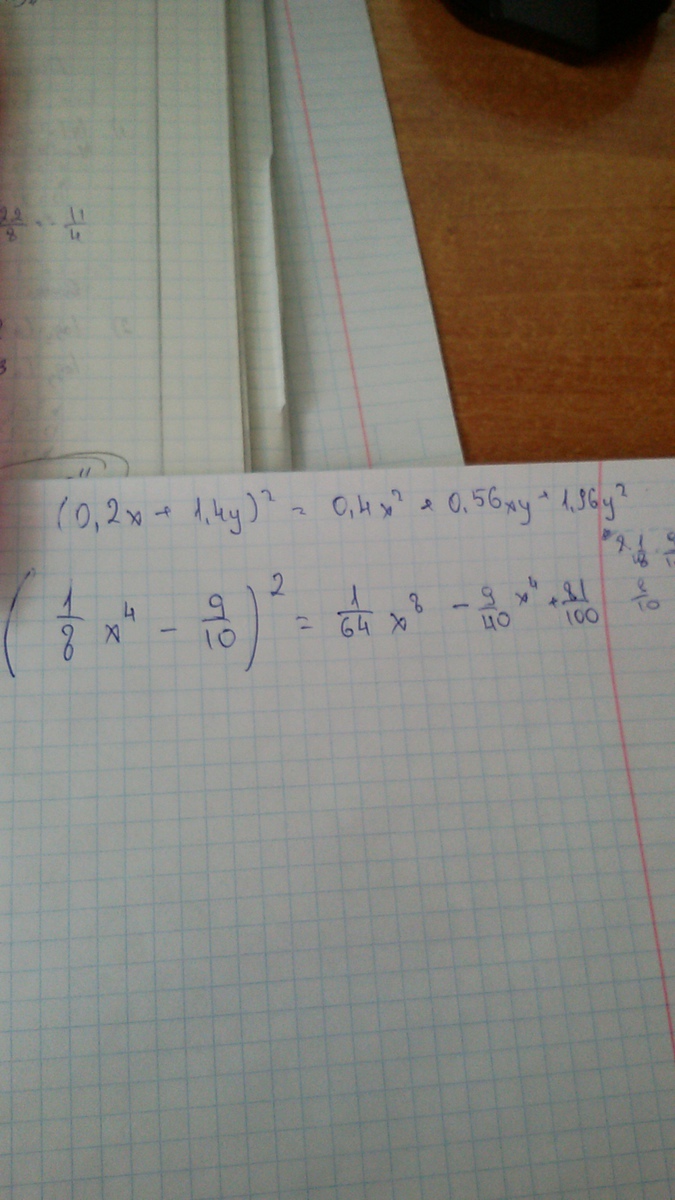 22/8 = - 11/4
(0,2x + 1,4y)² = 0,4x² + 0,56xy + 1,96y²
(1/8 x⁴ - 9/10)² = 1/64 x⁸ - 9/40 x⁴ + 81/100